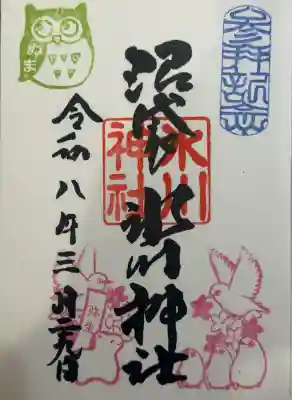 参拝記念
沼袋 氷川神社
氷川
神社
令和八年三月二九日
ぬま
弥生